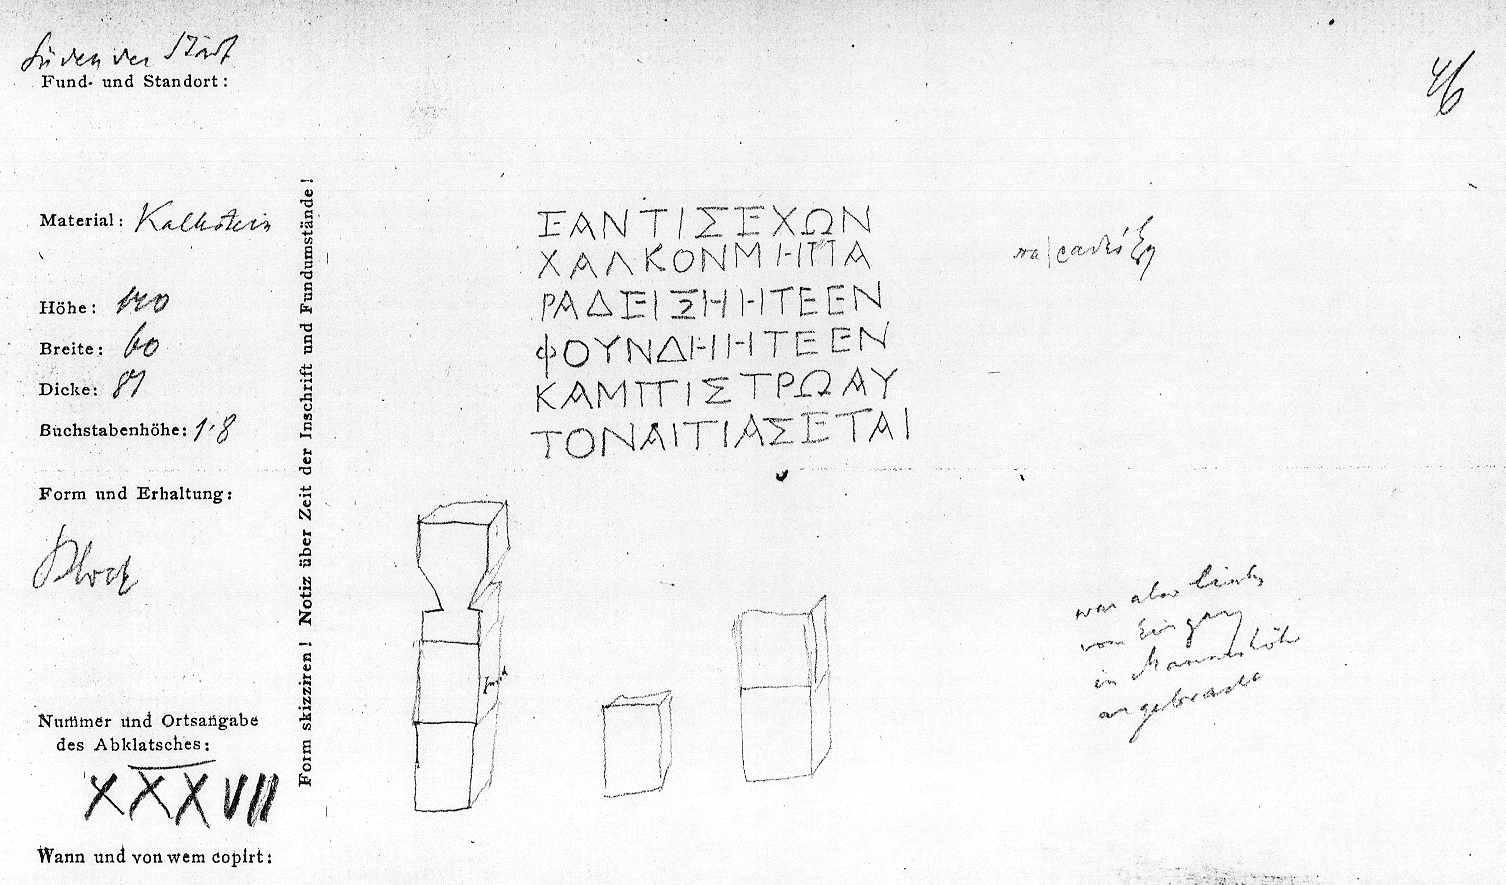 Süden der Stadt
Fund- und Standort:
46
Material: Kalkstein
Höhe: 120
Breite: 60
Dicke: 81
Buchstabenhöhe: 1·8
Form und Erhaltung:
Block
Nummer und Ortsangabe
des Abklatsches:
XXXVII
Wann und von wem copirt:
Form skizziren! Notiz über Zeit der Inschrift und Fundumstände!
ΕΑΝΤΙΣΕΧΩΝ
ΧΑΛΚΟΝΜΗΠΑ
ΡΑΔΕΙΞΗΗΤΕΕΝ
ΦΟΥΝΔΗΗΤΕΕΝ
ΚΑΜΠΙΣΤΡΩΑΥ
ΤΟΝΑΙΤΙΑΣΕΤΑΙ
πα|ραδείξῃ
war also links
vom Eingang
in Manneshöhe
angebracht